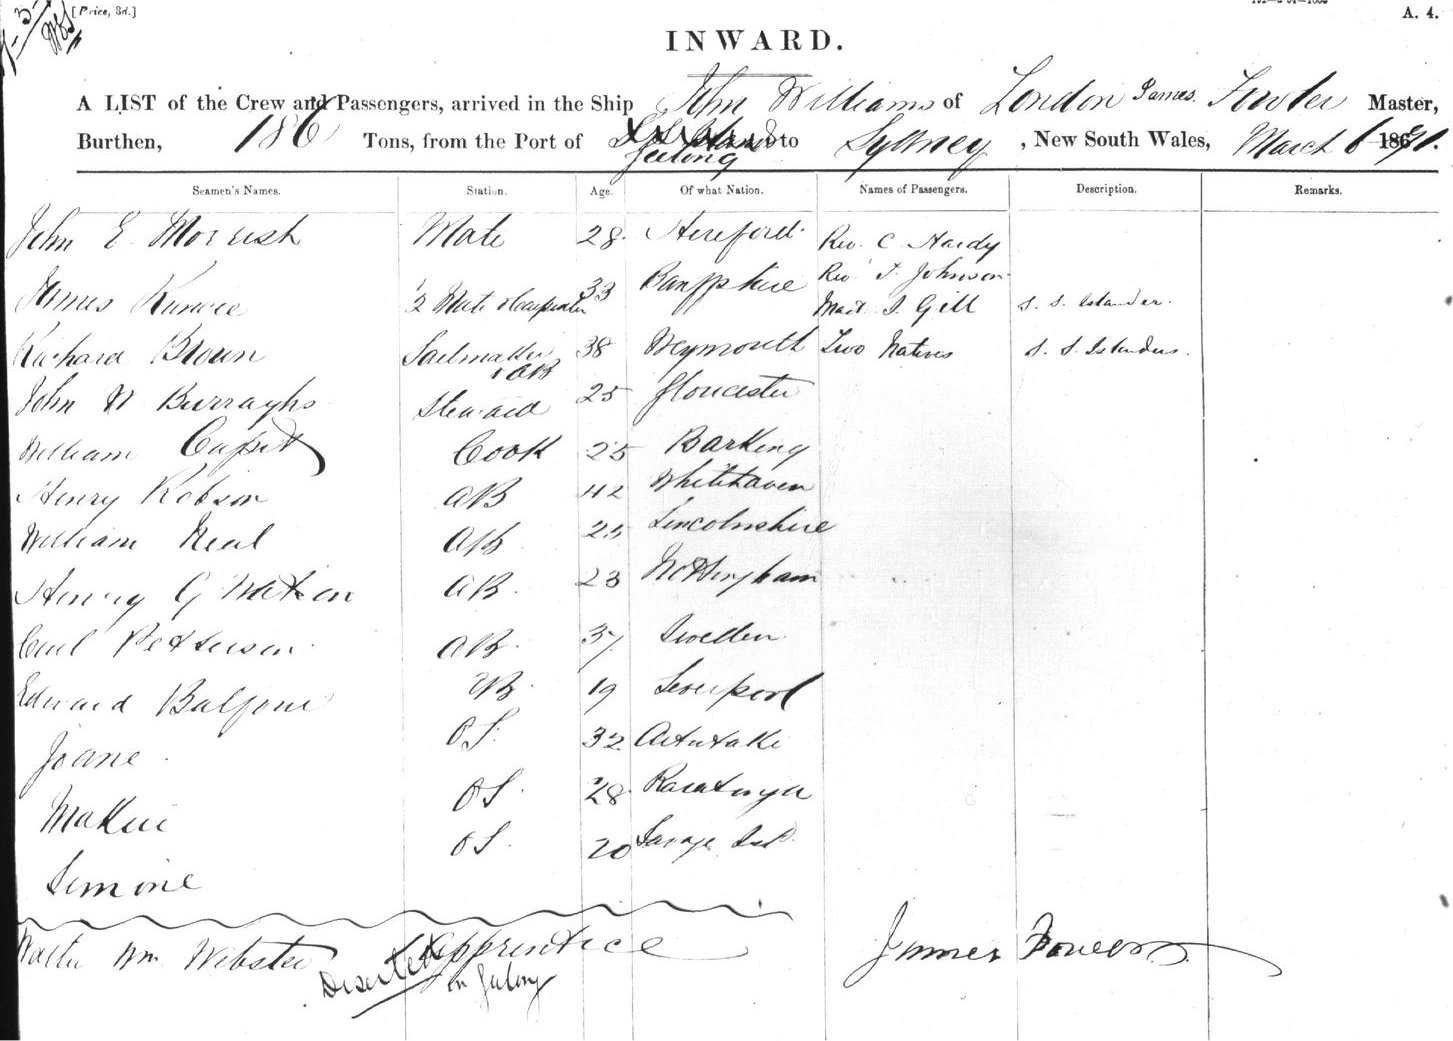 [Price, 3d.]
A. 4.
INWARD.
A LIST of the Crew and Passengers, arrived in the Ship John Williams of London James Fowler Master,
Burthen, 186 Tons, from the Port of Geelong to Sydney, New South Wales, March 6 1871.
Seamen's Names. Station. Age. Of what Nation. Names of Passengers. Description. Remarks.
John E Morrish Mate 28 Hereford Rev. C Hardy
Rev F. Johnson
James 2 Mate & Carpenter 33 Banffshire Mast J. Gill S. S. Islander
Richard Brown Sailmaker & AB 38 Weymouth Two Natives S. S. Islanders
John W Burraghs Steward 25 Gloucester
William Cook 25 Barking
Henry Robson AB 42 Whitehaven
William Neal AB 25 Lincolnshire
Henry G Watson AB 23 Nottingham
Carl Petterson AB 37 Sweden
Edward Balfour AB 19 Liverpool
Joane OS 32 Aitutaki
OS 28 Raratonga
Simone OS 20 Savage Isd
Walter Wm Webster Apprentice
Deserted in Geelong
James Fowler